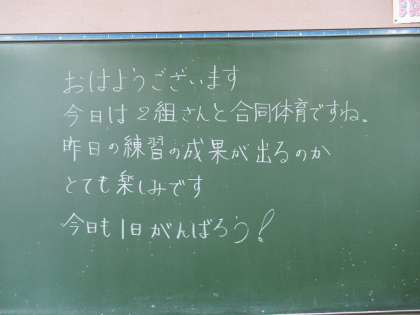 おはようございます
今日は2組さんと合同体育ですね。
昨日の練習の成果が出るのか
とても楽しみです
今日も1日がんばろう!